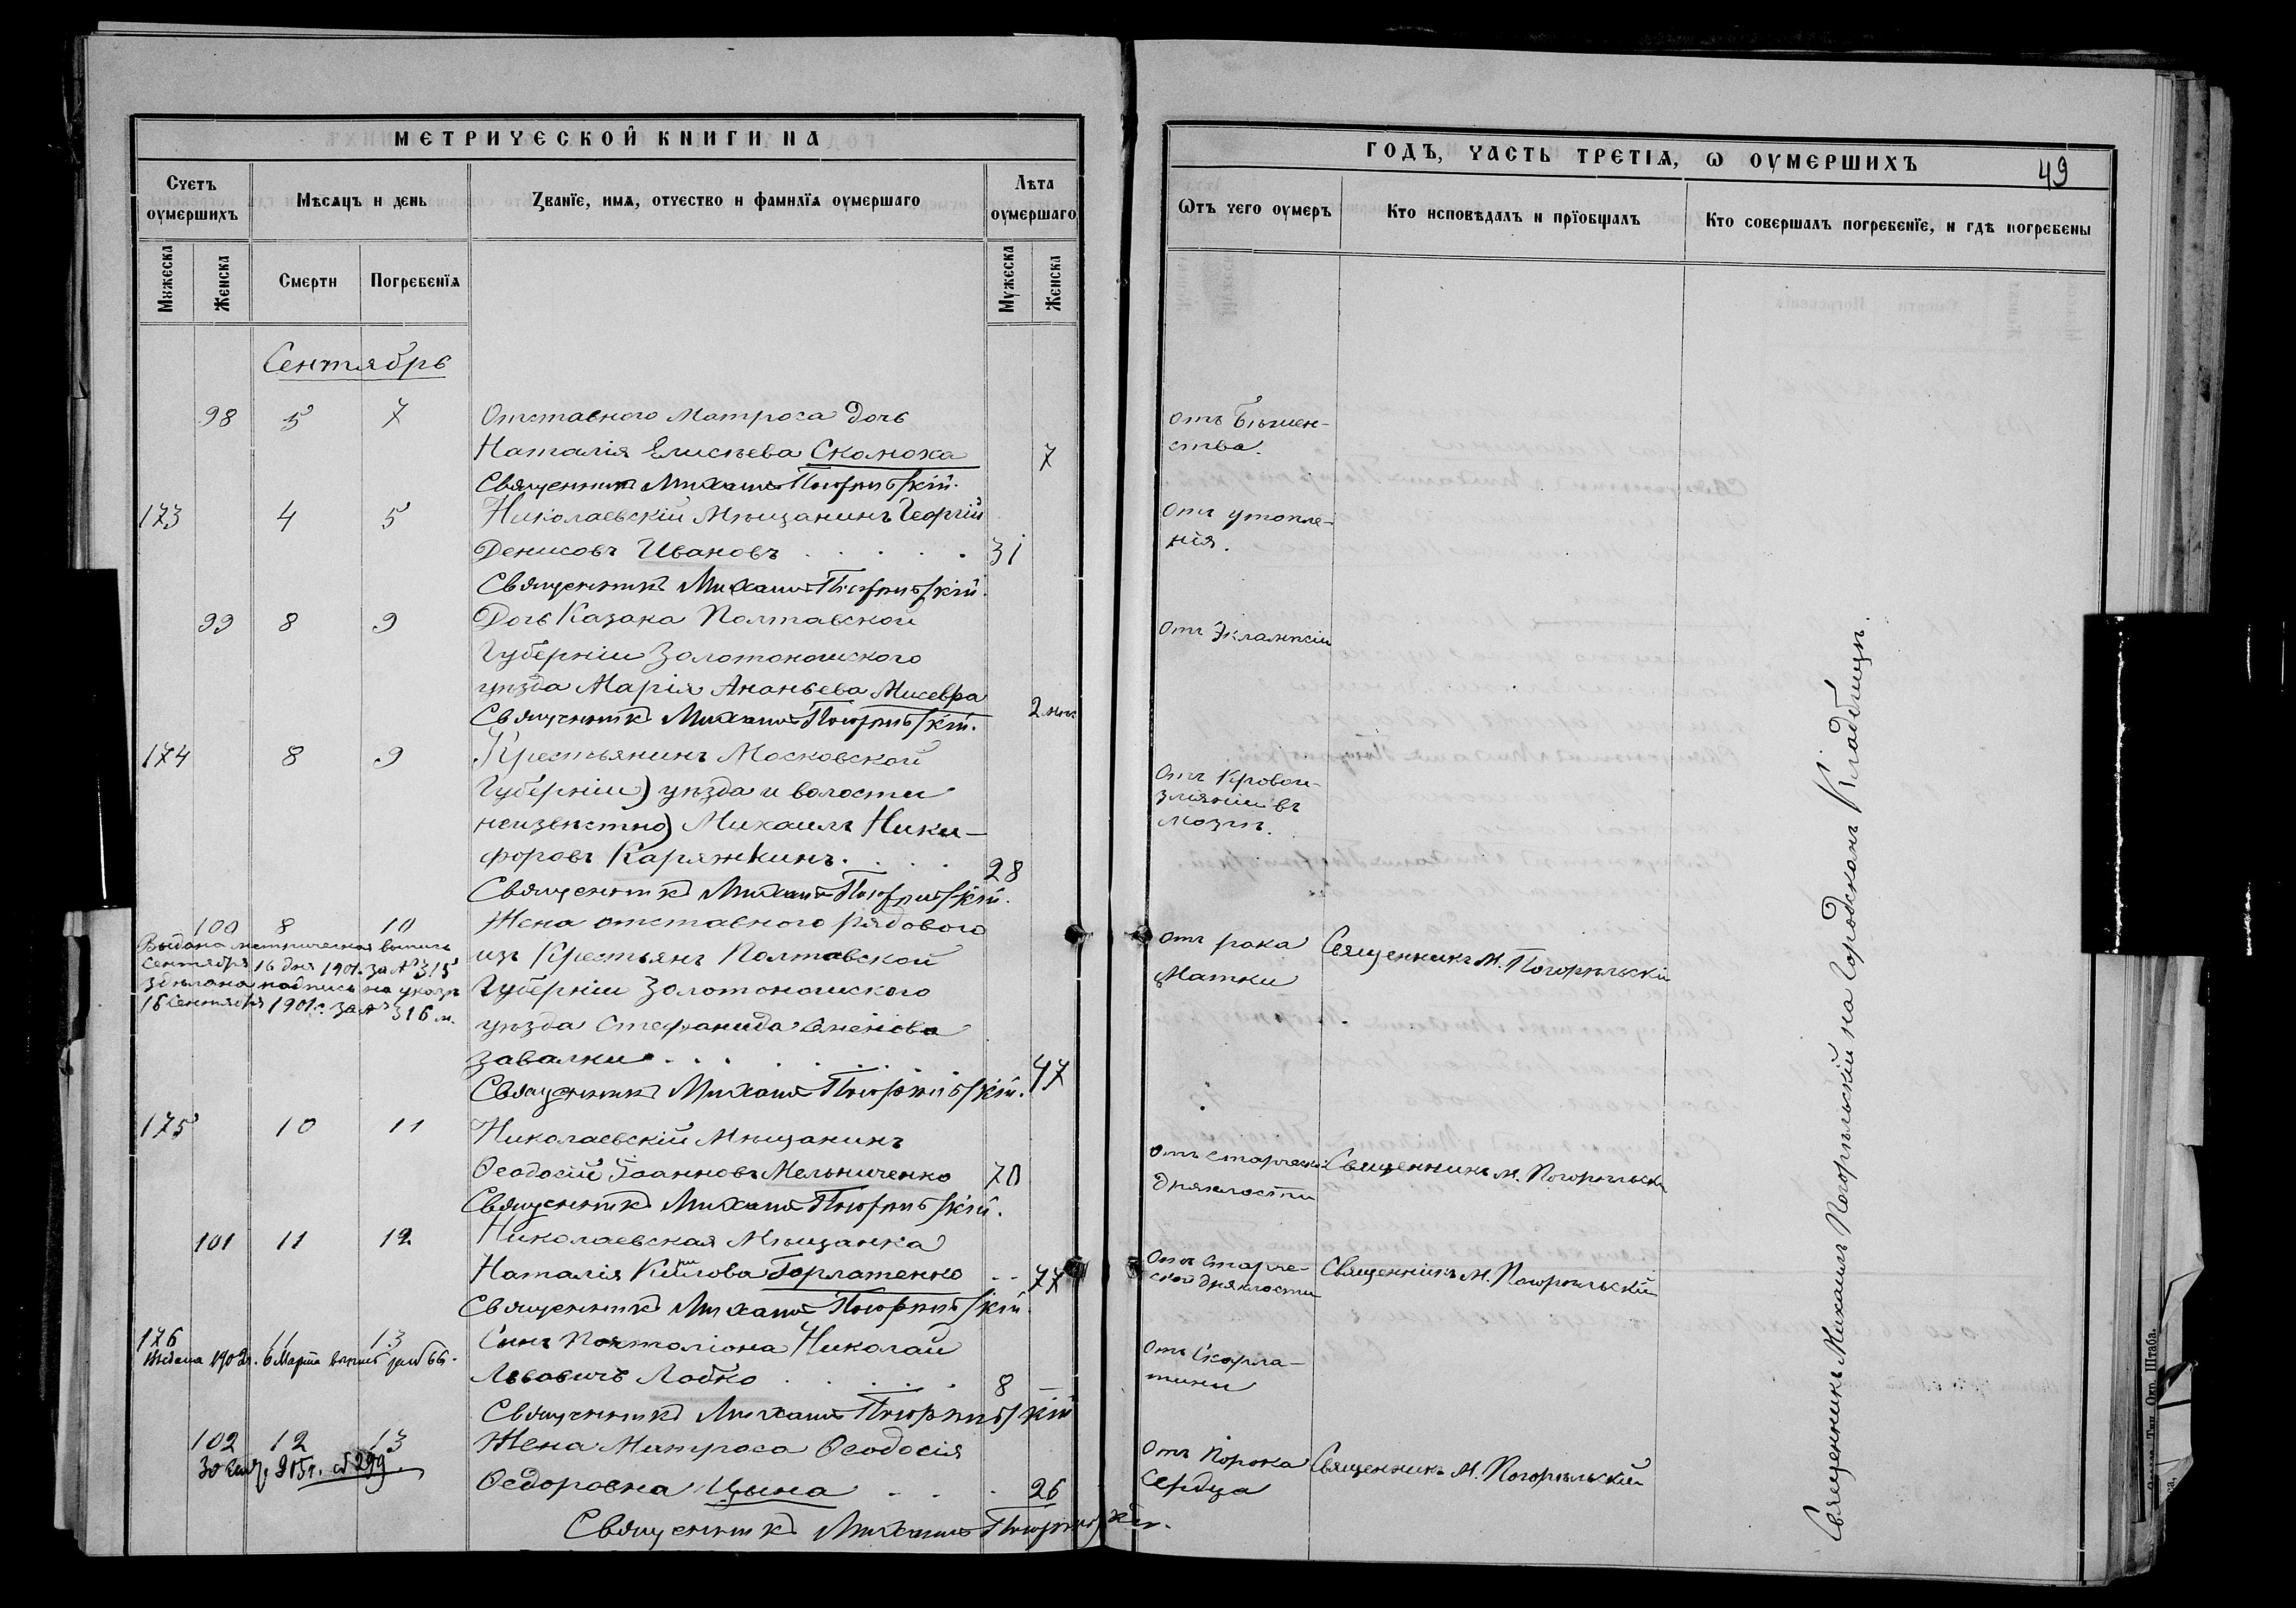 МЕТРИЧЕСКОЙ КНИГИ НА
Счетъ оумершихъ
Мѣсяцъ и день
Званїе, имя, отчество и фамилїя оумершаго
Лѣта оумершаго
Мужеска
Женска
Смерти
Погребенїя
Мужеска
Женска
Сентябрь
98 5 7 Отставного Матроса дочь
Наталія Елисѣева Сколоха 7
Священникъ Михаилъ Погорѣльскій.
173 4 5 Николаевскій Мѣщанинъ Георгій
Денисовъ Ивановъ 31
Священникъ Михаилъ Погорѣльскій.
99 8 9 Дочь Казака Полтавской
Губерніи Золотоношского
уѣзда Марія Ананьева Мисевра 2 мѣс
Священникъ Михаилъ Погорѣльскій.
174 8 9 Крестьянинъ Московской
Губерніи) уѣзда и волости
неизвѣстно) Михаилъ Ники-
форовъ Каряжкинъ. 28
Священникъ Михаилъ Погорѣльскій.
100 8 10 Жена отставного рядового
Выдана метрическая выпись
Сентября 16 дня 1901 г. за № 315
Здѣлана надпись на указѣ
16 Сентября 1901 г. за № 316 м.
изъ Крестьянъ Полтавской
Губерніи Золотоношского
уѣзда Стефанида
Завалки 47
Священникъ Михаилъ Погорѣльскій.
175 10 11 Николаевскій Мѣщанинъ
Ѳеодосій Іоанновъ Мельниченко 70
Священникъ Михаилъ Погорѣльскій.
101 11 12 Николаевская Мѣщанка
Наталія Горлатенко 77
Священникъ Михаилъ Погорѣльскій.
176 11 13 Сынъ Почталіона Николай
1902 г. 6 Марта выпись за № 66.
Львовичъ Лобко 8
Священникъ Михаилъ Погорѣльскій
102 12 13 Жена Матроса Ѳеодосія
299
Ѳедоровна Цына 26
Священникъ Михаилъ Погорѣльскій.
ГОДЪ, ЧАСТЬ ТРЕТІЯ, Ѡ ОУМЕРШИХЪ
49
Ѿтъ чего оумеръ
Кто исповѣдалъ и прїобщалъ
Кто совершалъ погребенїе, и гдѣ погребены
отъ Бѣшен-
ства.
Отъ утопле-
нія.
Отъ Эклампсіи
Отъ Кровои-
зліянія въ
мозгъ.
Отъ рака Священникъ М. Погорѣльскій
Матки
Отъ старческой Священникъ М. Погорѣльскій
дряхлости
Отъ старче- Священникъ М. Погорѣльскій
ской дряхлости
Отъ Скарла-
тины
Отъ Порока Священникъ М. Погорѣльскій
Сердца
Священникъ Михаилъ Погорѣльскій на Городскомъ Кладбищѣ.
Тип. Окр. Штаба.